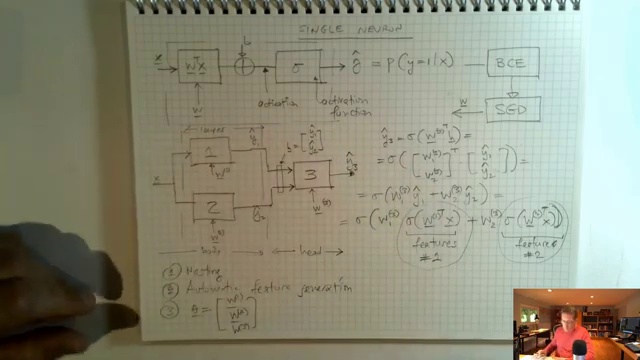 SINGLE NEURON
x
wᵀx
b
σ
ŷ = p(y=1|x)
BCE
w
activation
activation function
w
SGD
layer
ŷ₁
h = [ŷ₁ ŷ₂]
1
w⁽¹⁾
x
2
w⁽²⁾
ŷ₂
3
w⁽³⁾
ŷ₃
head
ŷ₃ = σ(w⁽³⁾ᵀ h) =
= σ([w₁⁽³⁾ w₂⁽³⁾]ᵀ [ŷ₁ ŷ₂]) =
= σ(w₁⁽³⁾ ŷ₁ + w₂⁽³⁾ ŷ₂) =
= σ(w₁⁽³⁾ σ(w⁽¹⁾ᵀx) + w₂⁽³⁾ σ(w⁽²⁾ᵀx))
features #2
feature #2
① Nesting
② Automatic feature generation
③
= [w⁽¹⁾ w⁽²⁾ w⁽³⁾]